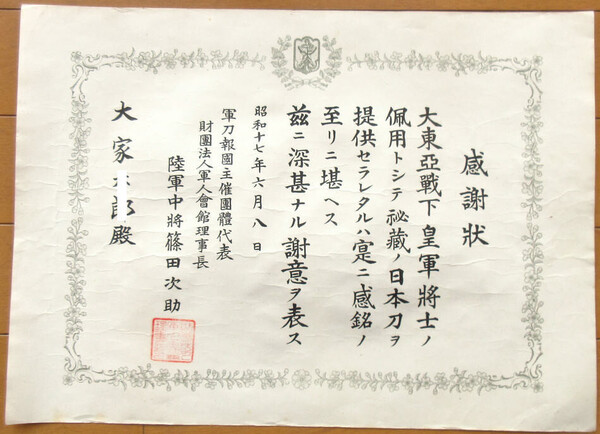 感謝狀
大東亞戰下皇軍將士ノ
佩用トシテ祕藏ノ日本刀ヲ
提供セラレタルハ寔ニ感銘ノ
至リニ堪ヘス
茲ニ深甚ナル謝意ヲ表ス
昭和十七年六月八日
軍刀報國主催團體代表
財團法人軍人會館理事長
陸軍中將篠田次助
大家郎殿